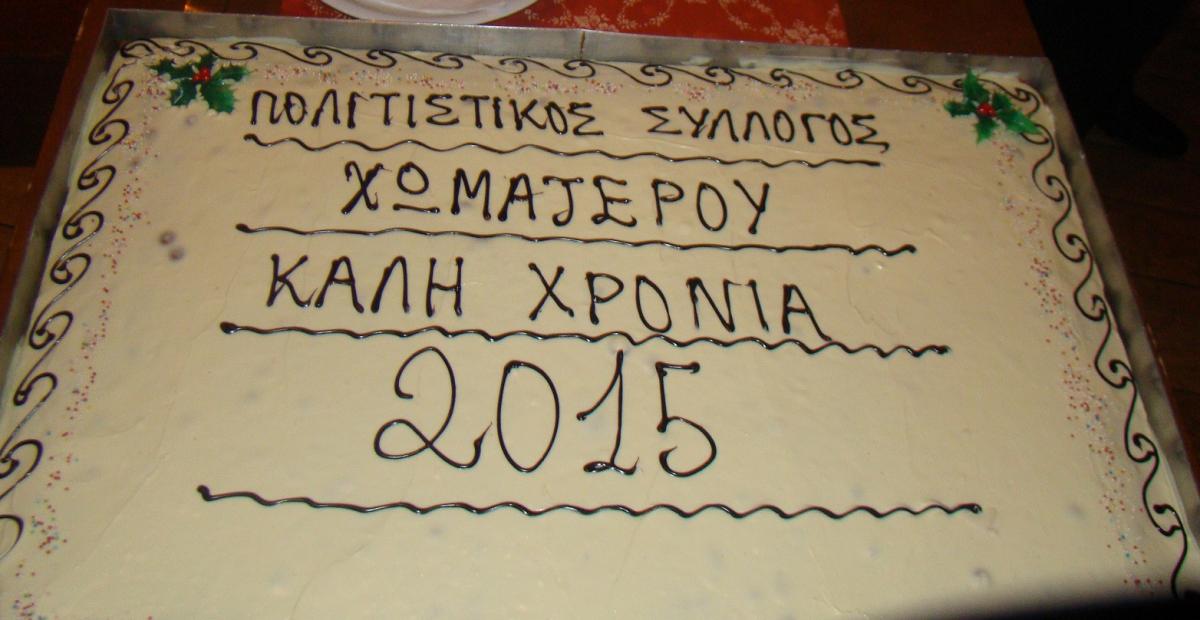 ΠΟΛΙΤΙΣΤΙΚΟΣ ΣΥΛΛΟΓΟΣ
ΧΩΜΑΤΕΡΟΥ
ΚΑΛΗ ΧΡΟΝΙΑ
2015